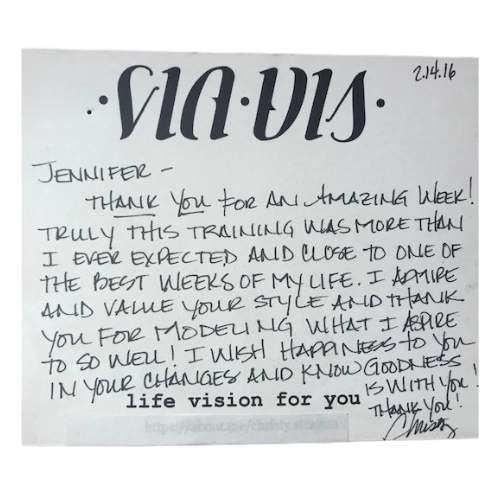 2.14.16
·VIA·VIS·
JENNIFER -
THANK YOU FOR AN AMAZING WEEK!
TRULY THIS TRAINING WAS MORE THAN
I EVER EXPECTED AND CLOSE TO ONE OF
THE BEST WEEKS OF MY LIFE. I ADMIRE
AND VALUE YOUR STYLE AND THANK
YOU FOR MODELING WHAT I ASPIRE
TO SO WELL! I WISH HAPPINESS TO YOU
IN YOUR CHANGES AND KNOW GOODNESS
IS WITH YOU!
life vision for you
THANK YOU!
Christy